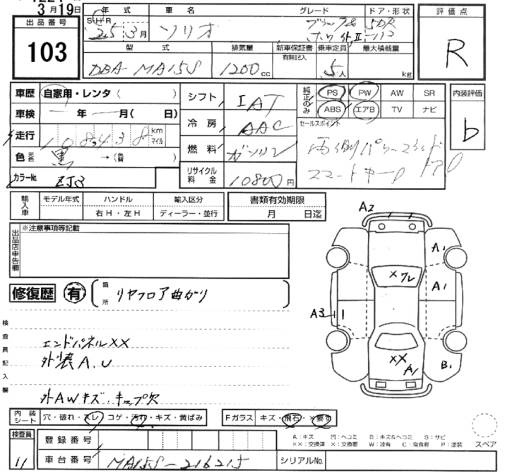 3月19日
出品番号
103
年式
車名
グレード
ドア・形状
評価点
S H R
25年3月
ソリオ
5DR
R
型式
排気量
新車保証書 有記入
乗車定員
最大積載量
DBA-MA15S
1200cc
5人
kg
車歴 自家用・レンタ( )
車検 年 月( )日
走行 108438 km マイル
色 黒 → (替)
カラーNo. ZJ3
シフト IAT
冷房 AAC
燃料 ガソリン
リサイクル料金 10800円
純正のみ
PS PW AW SR
ABS エアB TV ナビ
セールスポイント
両側パワースライドドア
スマートキー
内装評価
b
輸入車
モデル年式
ハンドル
輸入区分
右H・左H
ディーラー・並行
書類有効期限
月 日迄
出品店申告欄
※注意事項等記載
修復歴 有
箇所
リヤフロア曲がり
検査員記入欄
エンドパネルXX
外装A.U
外AWキズ・キャップ欠
A2
A1
×フレ
A1
A3
XX
A1
B1
内装シート
穴・破れ・スレ・コゲ・汚れ・キズ・黄ばみ
Fガラス キズ・飛石・×要交
A:キズ
U:ヘコミ
B:キズ&ヘコミ
S:サビ
XX:交換済
X:交換要
W:波有
C:腐食有
P:塗装
スペア
検査員
11
登録番号
車台番号 MA15S-216215
シリアルNo.